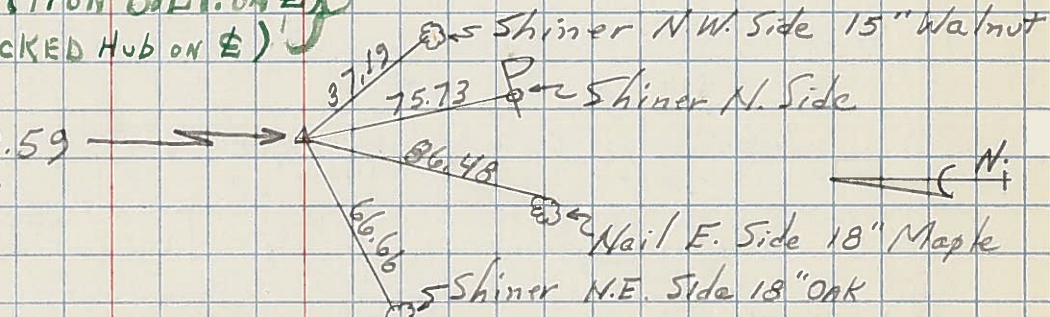 CKED HUB ON ℄)
37.19
Shiner N.W. Side 15" Walnut
75.73
Shiner N. Side
.59
86.48
N.
Nail E. Side 18" Maple
66.66
Shiner N.E. Side 18" OAK